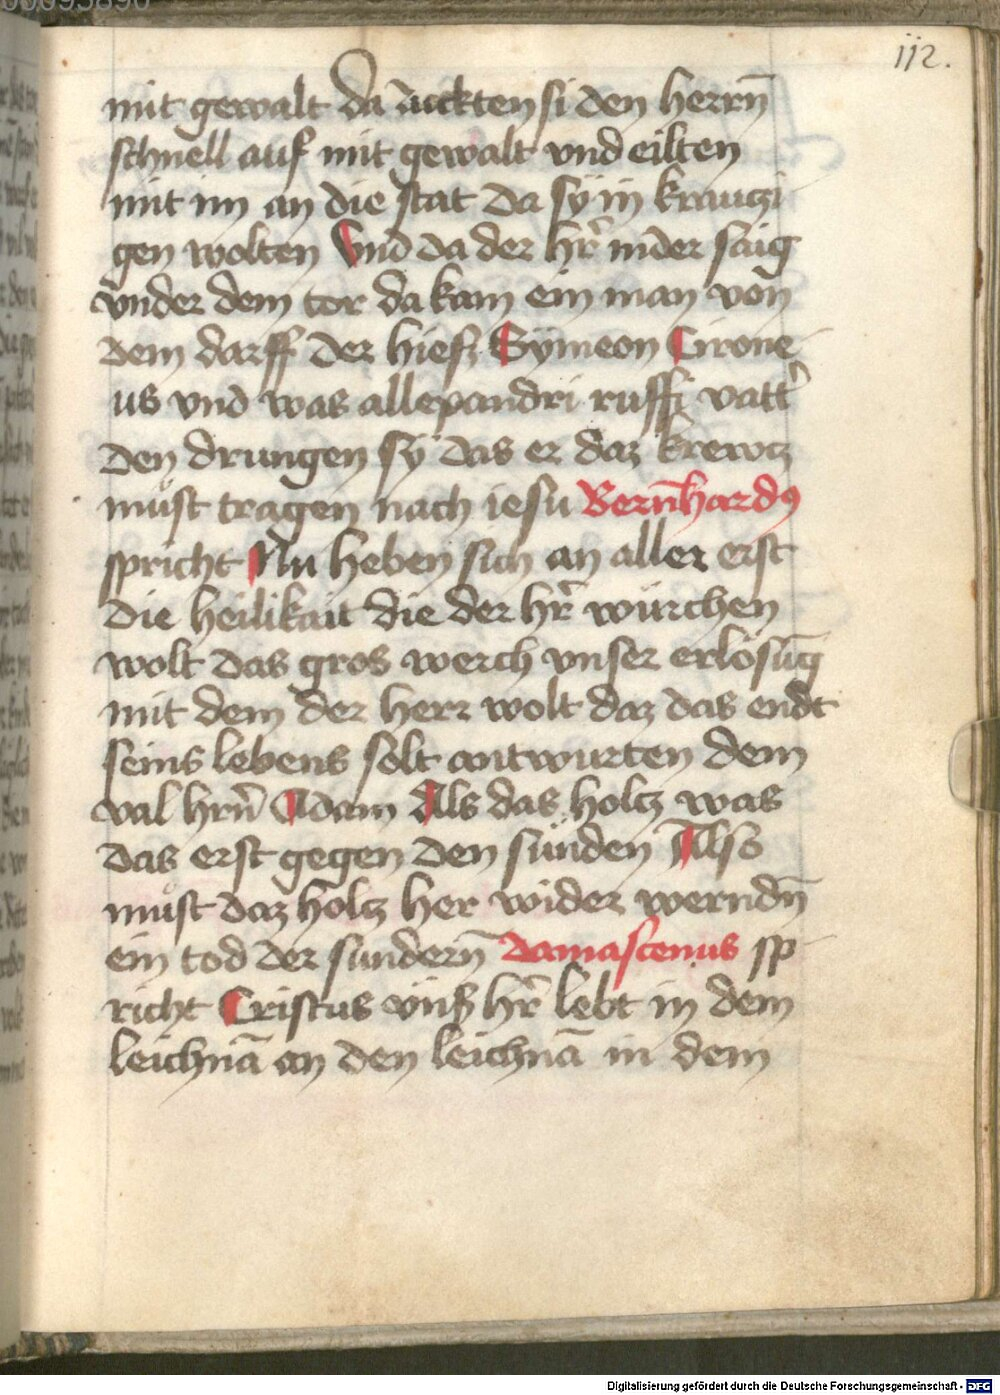 112.
mit gewalt da ruckten si den herrn̄
schnell auf mit gewalt vnd eilten
mit im an die stat da sÿ in krautzi
gen wolten Vnd da der hr̄ nider saig
vnder dem tor da kam ein man von
dem darff der hiesz Sÿmeon Cirone
us vnd was allexandri ruffi vatt̾
den drungen sÿ das er daz krewtz
můst tragen nach iesu Bern̄hardꝰ
spricht Nu heben sich an aller erst
die heilikait die der hr̄ würchen
wolt das gros werch vnser erlosūg
mit dem der herr wolt daz das endt
seins lebens solt antwurten dem
val hrn̄ Adam Als das holtz was
das erst gegen den sünden Also
můst daz holtz her wider werndn̄
ein tod der sundern̄ damascenus sp
richt Cristus vnſz hr̄ lebt in dem
leichnā an den leichnā in dem
Digitalisierung gefördert durch die Deutsche Forschungsgemeinschaft - DFG